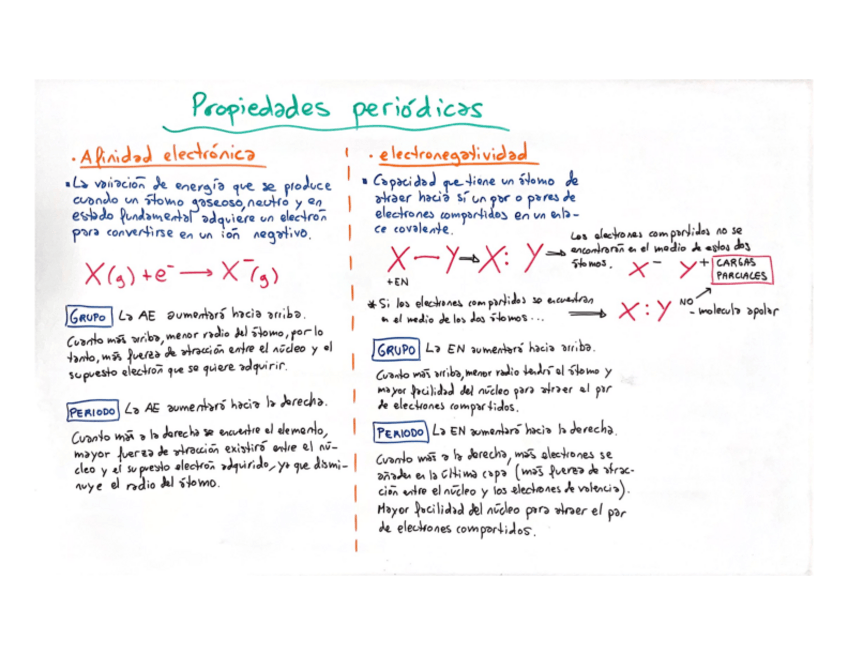 Propiedades periódicas
· Afinidad electrónica
▪ La variación de energía que se produce
cuando un átomo gaseoso, neutro y en
estado fundamental adquiere un electrón
para convertirse en un ión negativo.
X(g) + e⁻ → X⁻(g)
GRUPO La AE aumentará hacia arriba.
Cuanto más arriba, menor radio del átomo, por lo
tanto, más fuerza de atracción entre el núcleo y el
supuesto electrón que se quiere adquirir.
PERIODO La AE aumentará hacia la derecha.
Cuanto más a la derecha se encuentre el elemento,
mayor fuerza de atracción existirá entre el nú-
cleo y el supuesto electrón adquirido, ya que dismi-
nuye el radio del átomo.
· electronegatividad
▪ Capacidad que tiene un átomo de
atraer hacia sí un par o pares de
electrones compartidos en un enla-
ce covalente.
X — Y → X: Y →
+EN
Los electrones compartidos no se
encontrarán en el medio de estos dos
átomos.
X⁻ Y⁺ CARGAS
PARCIALES
* Si los electrones compartidos se encuentran
en el medio de los dos átomos... → X : Y NO
- molécula apolar
GRUPO La EN aumentará hacia arriba.
Cuanto más arriba, menor radio tendrá el átomo y
mayor facilidad del núcleo para atraer el par
de electrones compartidos.
PERIODO La EN aumentará hacia la derecha.
Cuanto más a la derecha, más electrones se
añaden en la última capa (más fuerza de atrac-
ción entre el núcleo y los electrones de valencia).
Mayor facilidad del núcleo para atraer el par
de electrones compartidos.